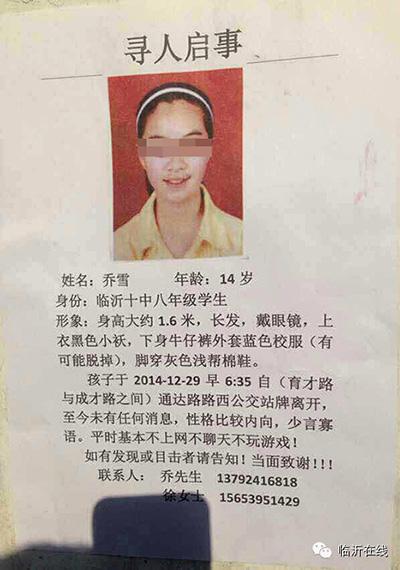 寻人启事
姓名：乔雪 年龄：14 岁
身份：临沂十中八年级学生
形象：身高大约 1.6 米，长发，戴眼镜，上
衣黑色小袄，下身牛仔裤外套蓝色校服（有
可能脱掉），脚穿灰色浅帮棉鞋。
孩子于 2014-12-29 早 6:35 自（育才路
与成才路之间）通达路路西公交站牌离开，
至今未有任何消息，性格比较内向，少言寡
语。平时基本不上网不聊天不玩游戏！
如有发现或目击者请告知！当面致谢！！！
联系人： 乔先生 13792416818
徐女士 15653951429
临沂在线